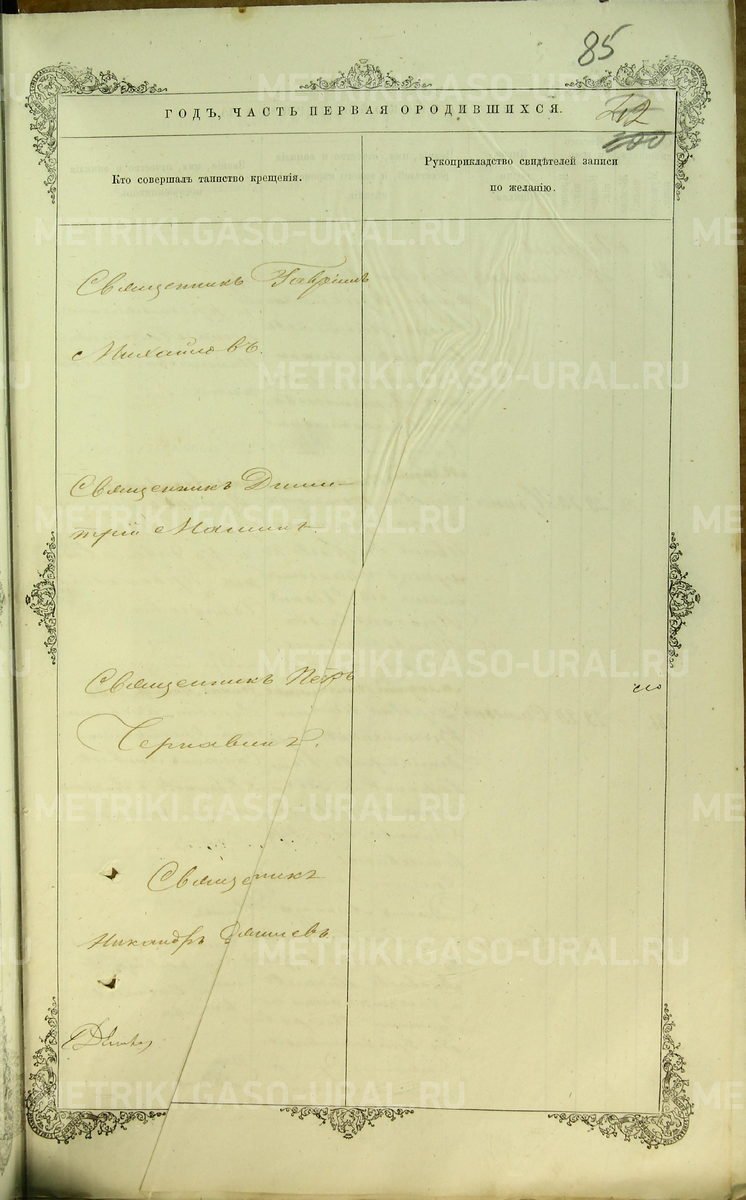 85
ГОДЪ, ЧАСТЬ ПЕРВАЯ ОРОДИВШИХСЯ.
42
300
Кто совершалъ таинство крещенія.
Рукоприкладство свидѣтелей записи
по желанію.
Священникъ Гавріилъ
Михайловъ.
Священникъ Дими-
трій
Священникъ Петръ
Чернавинъ.
Священникъ
Никандръ
METRIKI.GASO-URAL.RU